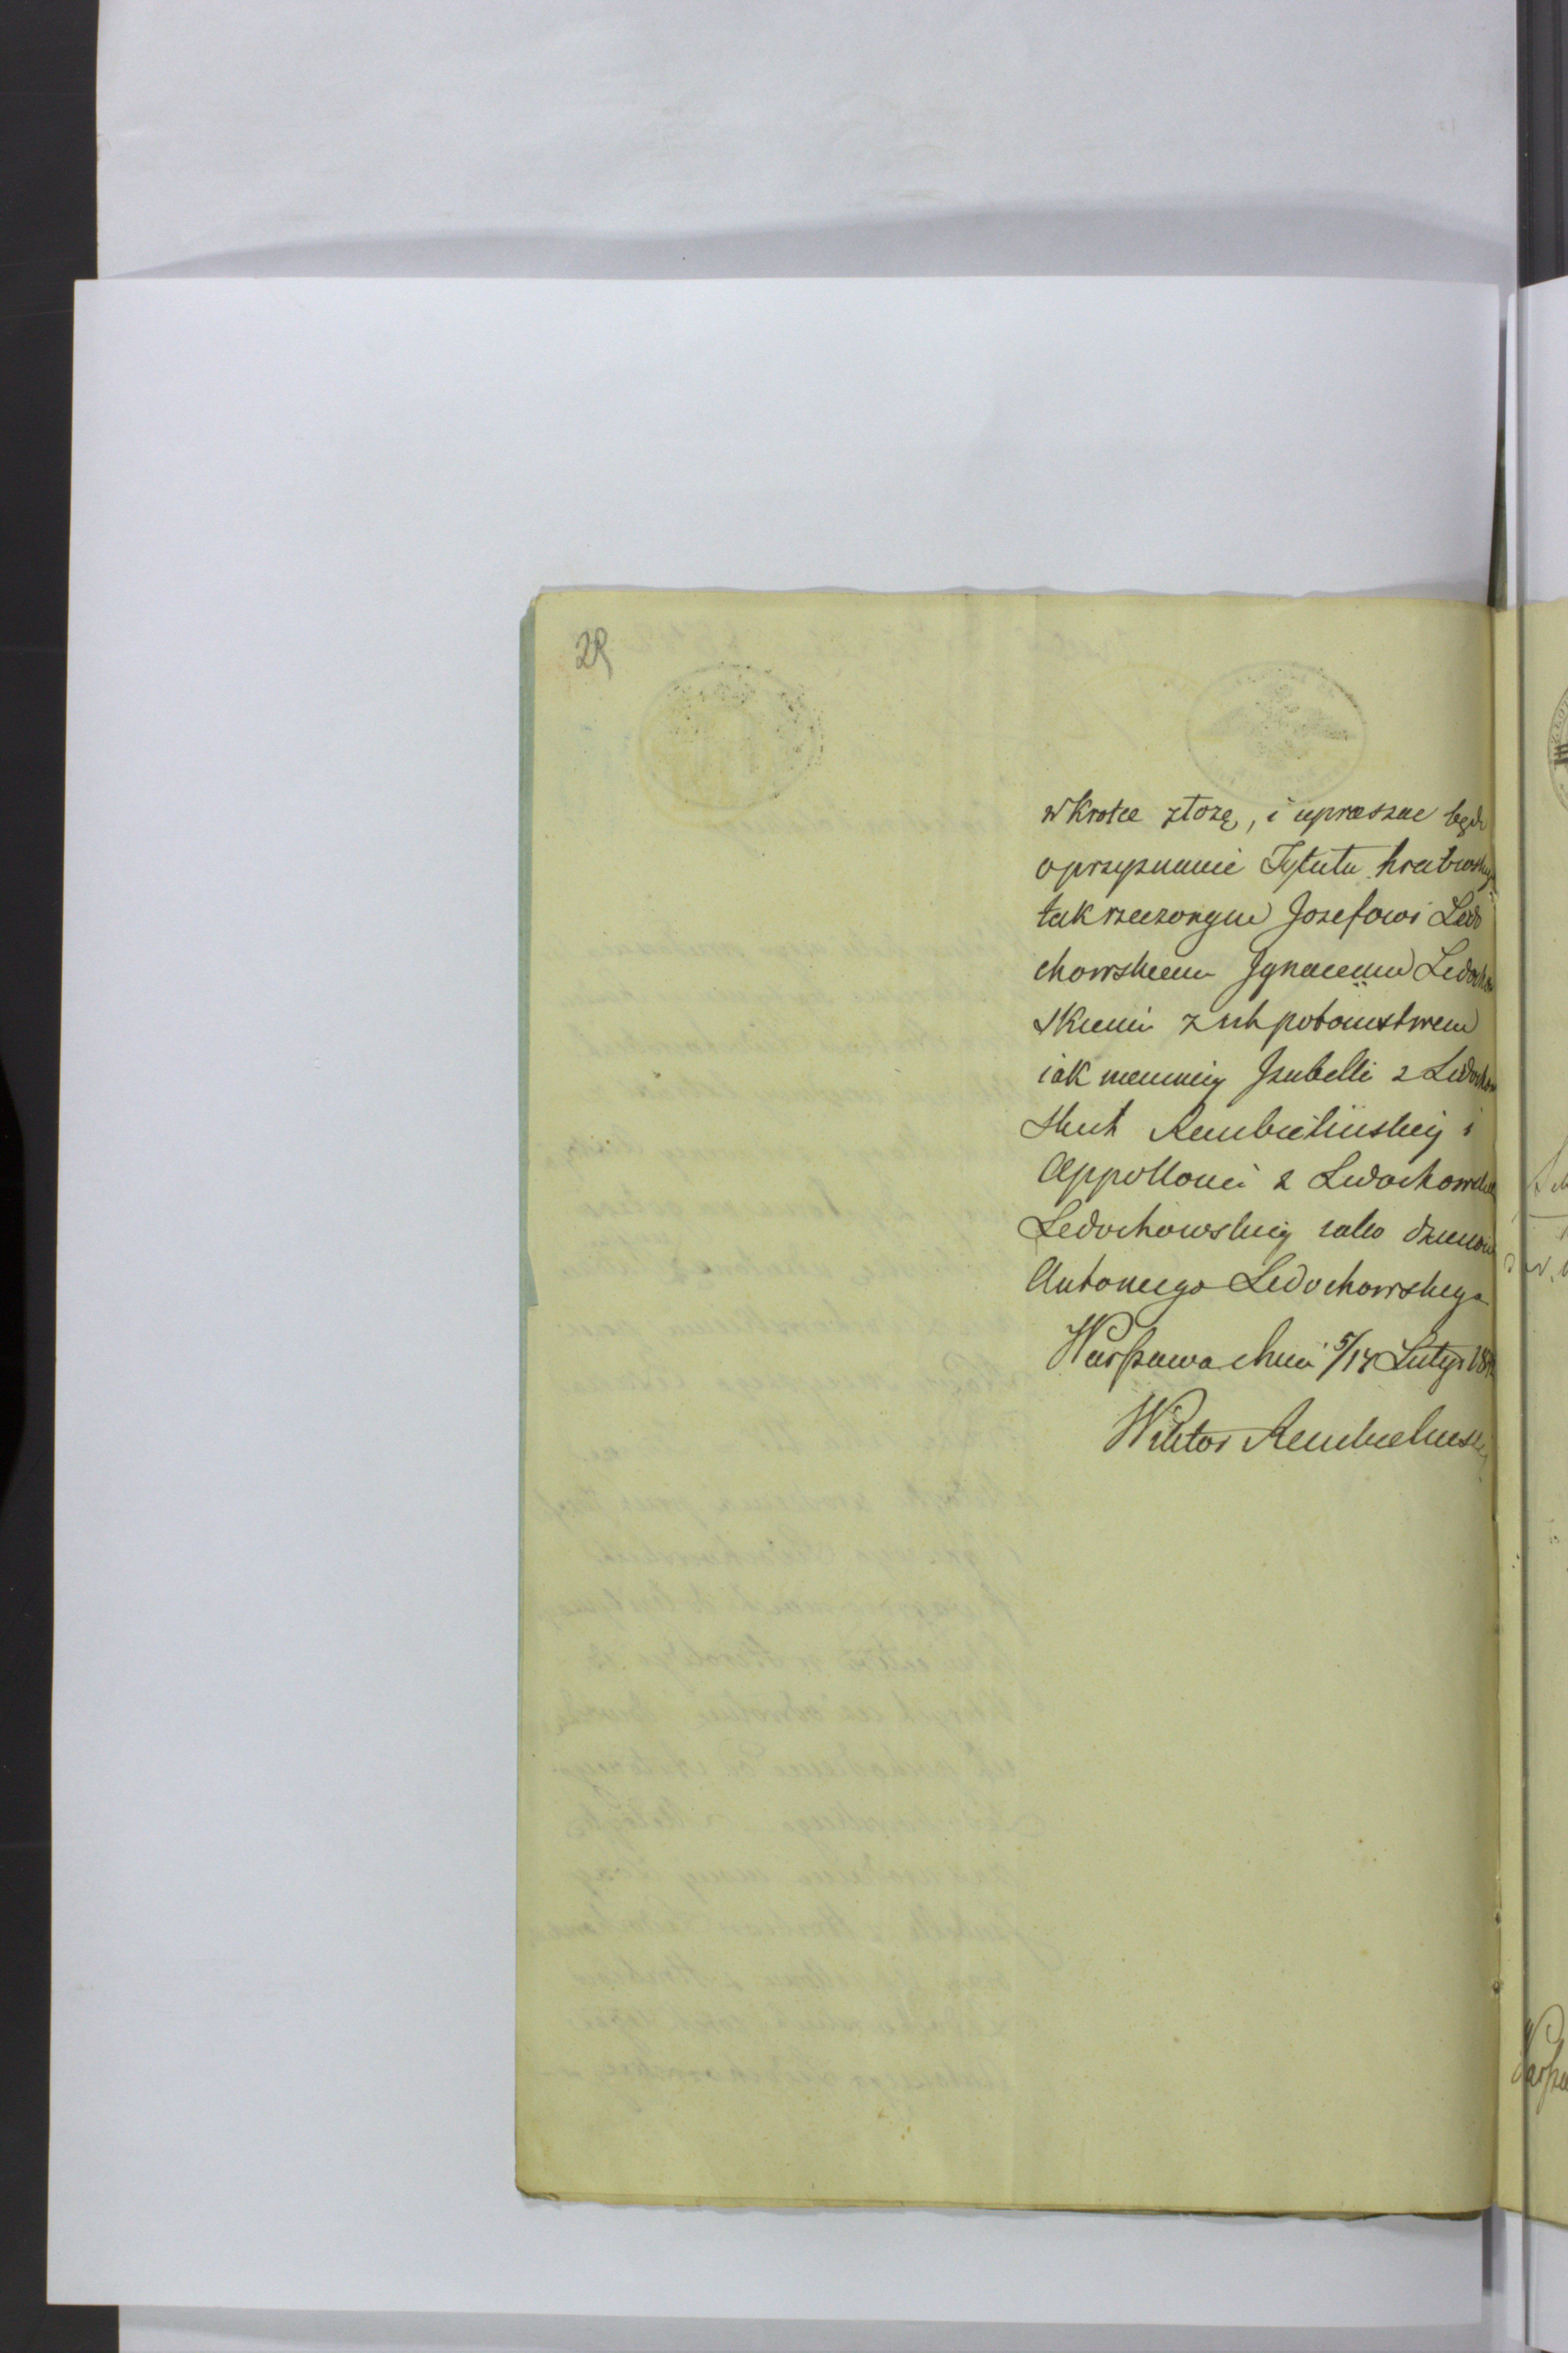 29
wkrotce złozę, i upraszac będę
o przyznanie Tytułu hrabiowskiego
tak rzeczonym Jozefowi Ledo
chowskiemu Ignacemu Ledochow
skiemu z ich potomstwem
iak niemniey Izabelli z Ledochow
skich Rembielinskiey i
Appollonii z Ledochowskich
Ledochowskiey iako dzieciom
Antoniego Ledochowskiego
Warszawa dnia 5/17 Lutego 18
Wiktor Rembielinski